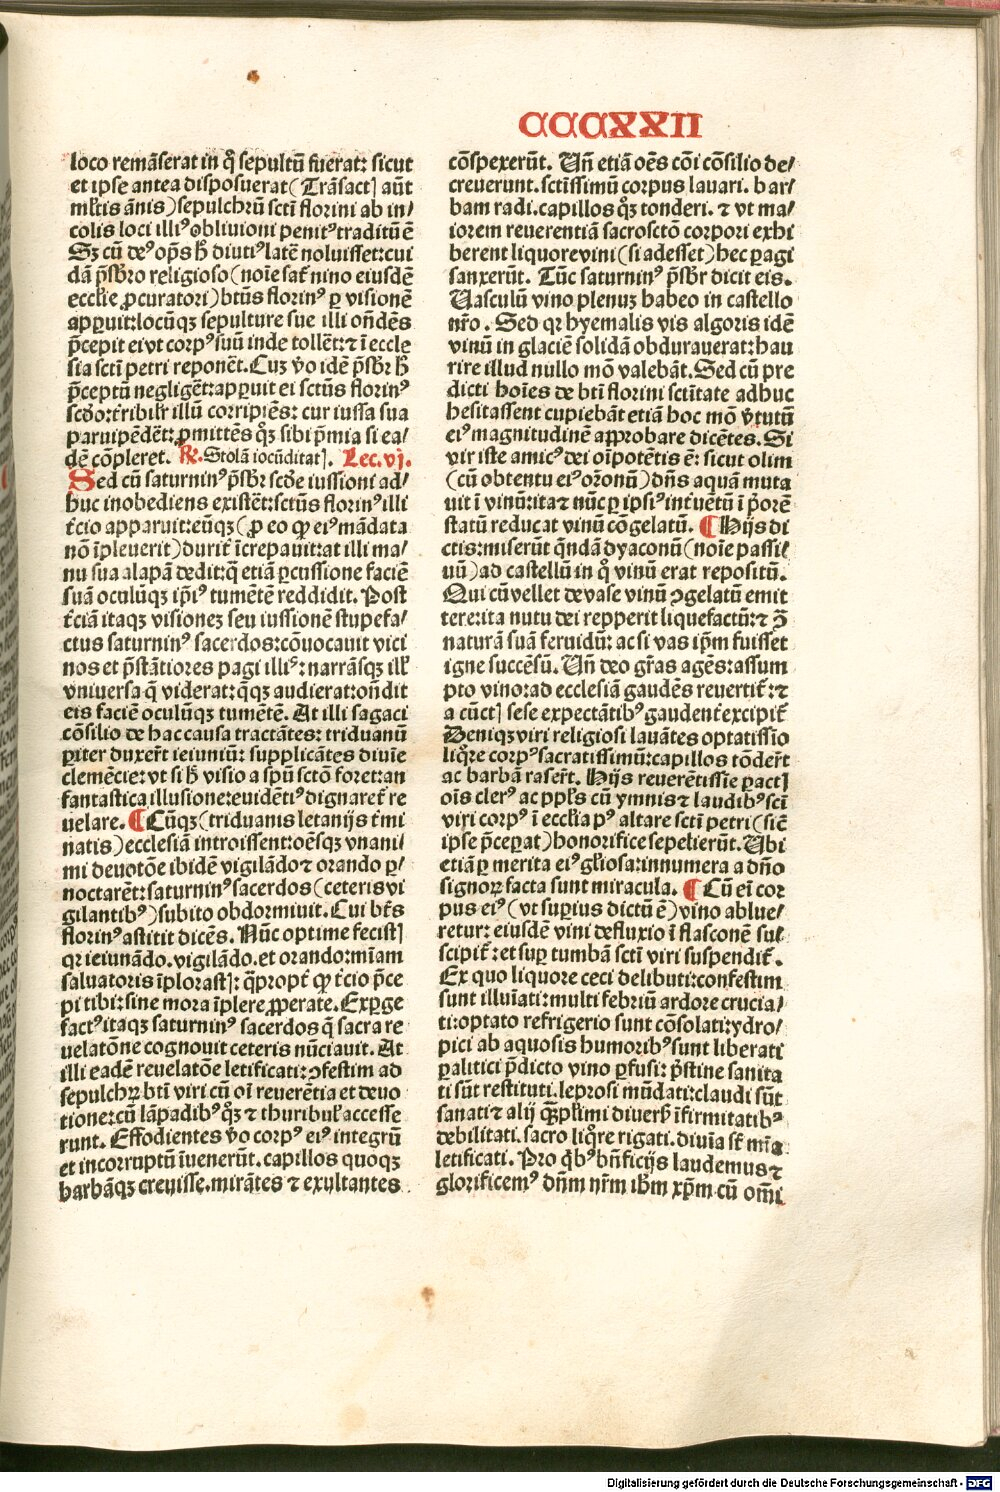 CCCXXII
loco remāserat in q̊ sepultū fuerat: sicut
et ipse antea disposuerat (Trāsactꝭ aūt
ml̄tis ānis) sepulchrū sctī florini ab in⸗
colis loci illiꝰ obliuioni penitꝰ traditū ē
Sꝫ cū deꝰ opꝰs h̄ diutiꝰ latē noluisset: cui
dā p̄sb̄ro religioso (noīe saꝉ nino eiusdē
eccl̄ie ꝓcuratori) bt̄us florinꝰ ꝑ visionē
apꝑuit: locūqꝫ sepulture sue illi oñdēs
p̄cepit ei vt corpꝰ suū inde tollēt: ⁊ ī eccle
sia sctī petri reponēt. Cuꝫ v̄o idē p̄sb̄r h̄
p̄ceptū negligēt: apꝑuit ei sctūs florinꝰ
scd̄o: t̄ribiꝉr illū corripiēs: cur iussa sua
paruipēdēt: ꝓmittēs qꝫ̊ sibi p̄mia si ea⸗
dē cōpleret. ℟. Stolā iocūditatꝭ. Lec. vj.
Sed cū saturninꝰ p̄sb̄r scd̄e iussioni ad⸗
huc inobediens existēt: sctūs florinꝰ illi
t̄cio apparuit: eūqꝫ (ꝓ eo ꝙ eiꝰ mādata
nō īpleuerit) duriť īcrepauit: at illi ma⸗
nu sua alapā dedit: q̄ etiā ꝑcussione faciē
suā oculūqꝫ ip̄iꝰ tumētē reddidit. Post
t̄ciā itaqꝫ visioneꝫ seu iussionē stupefa⸗
ctus saturninꝰ sacerdos: cōuocauit vici
nos et p̄stātiores pagi illiꝰ: narrāsqꝫ illꝭ
vniuersa q̄ viderat: q̄qꝫ audierat: oñdit
eis faciē oculūqꝫ tumētē. At illi sagaci
cōsilio de hac causa tractātes: triduanū
ꝑiter duxer̄t ieiuniū: supplicātes diuīe
clemēcie: vt si h̄ visio a spū sctō foret: an
fantastica illusione: euidētiꝰ dignareť re
uelare. ¶ Cūqꝫ (triduanis letanijs ťmi
natis) ecclesiā introissent: oēsqꝫ vnani⸗
mi deuotōe ibidē vigilādo ⁊ orando ꝑ⸗
noctarēt: saturninꝰ sacerdos (ceteris vi
gilantibꝰ) subito obdormiuit. Cui bt̄s
florinꝰ astitit dicēs. Nūc optime fecistꝭ
qꝛ ieiunādo. vigilādo. et orando: mīam
saluatoris īplorastꝭ: q̄propť ꝙ t̄cio p̄ce
pi tibi: sine mora īplere ꝓperate. Exꝑge
factꝰ itaqꝫ saturninꝰ sacerdos q̄ sacra re
uelatōne cognouit ceteris nūciauit. At
illi eadē reuelatōe letificati: ꝯfestim ad
sepulchꝝ btī viri cū oī reuerētia et deuo
tione: cū lāpadibꝰ qꝫ̊ ⁊ thuribuꝉ accesse
runt. Effodientes v̄o corpꝰ eiꝰ integrū
et incorruptū īuenerūt. capillos quoqꝫ
barbāqꝫ creuisse. mirātes ⁊ exultantes
cōspexerūt. Vn̄ etiā oēs cōi cōsilio de⸗
creuerunt. sctīssimū corpus lauari. bar⸗
bam radi. capillos qꝫ̊ tonderi. ⁊ vt ma⸗
iorem reuerentiā sacrosctō corpori exhi
berent liquore vini (si adesset) hec ꝑagi
sanxerūt. Tūc saturninꝰ p̄sb̄r dicit eis.
Vasculū vino plenuꝫ habeo in castello
nr̄o. Sed qꝛ hyemalis vis algoris idē
vinū in glaciē solidā obdurauerat: hau
rire illud nullo mō valebāt. Sed cū pre
dicti hoīes de btī florini sctītate adhuc
hesitassent cupiebāt etiā hoc mō v̄tutū
eiꝰ magnitudinē approbare dicētes. Si
vir iste amicꝰ dei oīpotētis ē: sicut olim
(cū obtentu eiꝰ or̄onū) dn̄s aquā muta
uit ī vinū: ita ⁊ nūc ꝑ ipsiꝰ int̄uētū ī p̄orē
statū reducat vinū cōgelatū. ¶ Hijs di
ctis: miserūt q̄ndā dyaconū (noīe passi⸗
uū) ad castellū in q̊ vinū erat repositū.
Qui cū vellet de vase vinū ꝯgelatū emit
tere: ita nutu dei repperit liquefactū: ⁊ ꝯ̄
naturā suā feruidū: ac si vas ip̄m fuisset
igne succēsū. Vn̄ deo gr̄as agēs: assum
pto vino: ad ecclesiā gaudēs reuertiť: ⁊
a cūctꝭ sese expectātibꝰ gaudenť excipiť
Deniqꝫ viri religiosi lauātes optatissīo
liq̊re corpꝰ sacratissimū: capillos tōder̄t
ac barbā raser̄t. Hijs reuerētissīe ꝑactꝭ
oīs clerꝰ ac ppl̄s cū ymnis ⁊ laudibꝰ sctī
viri corpꝰ ī eccl̄ia pꝰ altare sctī petri (siē
ipse p̄ceꝑat) honorifice sepelierūt. Vbi
etiā ꝑ merita eiꝰ gl̄iosa: innumera a dn̄o
signoꝝ facta sunt miracula. ¶ Cū eī cor
pus eiꝰ (vt suꝑius dictū ē) vino ablue⸗
retur: eiusdē vini defluxio ī flasconē su⸗
scipiť: et suꝑ tumbā sctī viri suspendiť.
Ex quo liquore ceci delibuti: confestim
sunt illuīati: multi febriū ardore crucia⸗
ti: optato refrigerio sunt cōsolati: ydro⸗
pici ab aquosis humoribꝰ sunt liberati
ꝑalitici p̄dicto vino ꝑfusi: p̄stine sanita
ti sūt restituti. leprosi mūdati: claudi sūt
sanati ⁊ alij qꝫpl̄imi diuers̄ īfirmitatibꝰ
debilitati. sacro liq̊re rigati. diuīa sť mīa
letificati. Pro q̄bꝰ bn̄ficijs laudemus ⁊
glorificemꝰ dn̄m nr̄m ih̄m xp̄m cū om̄i
Digitalisierung gefördert durch die Deutsche Forschungsgemeinschaft - DFG